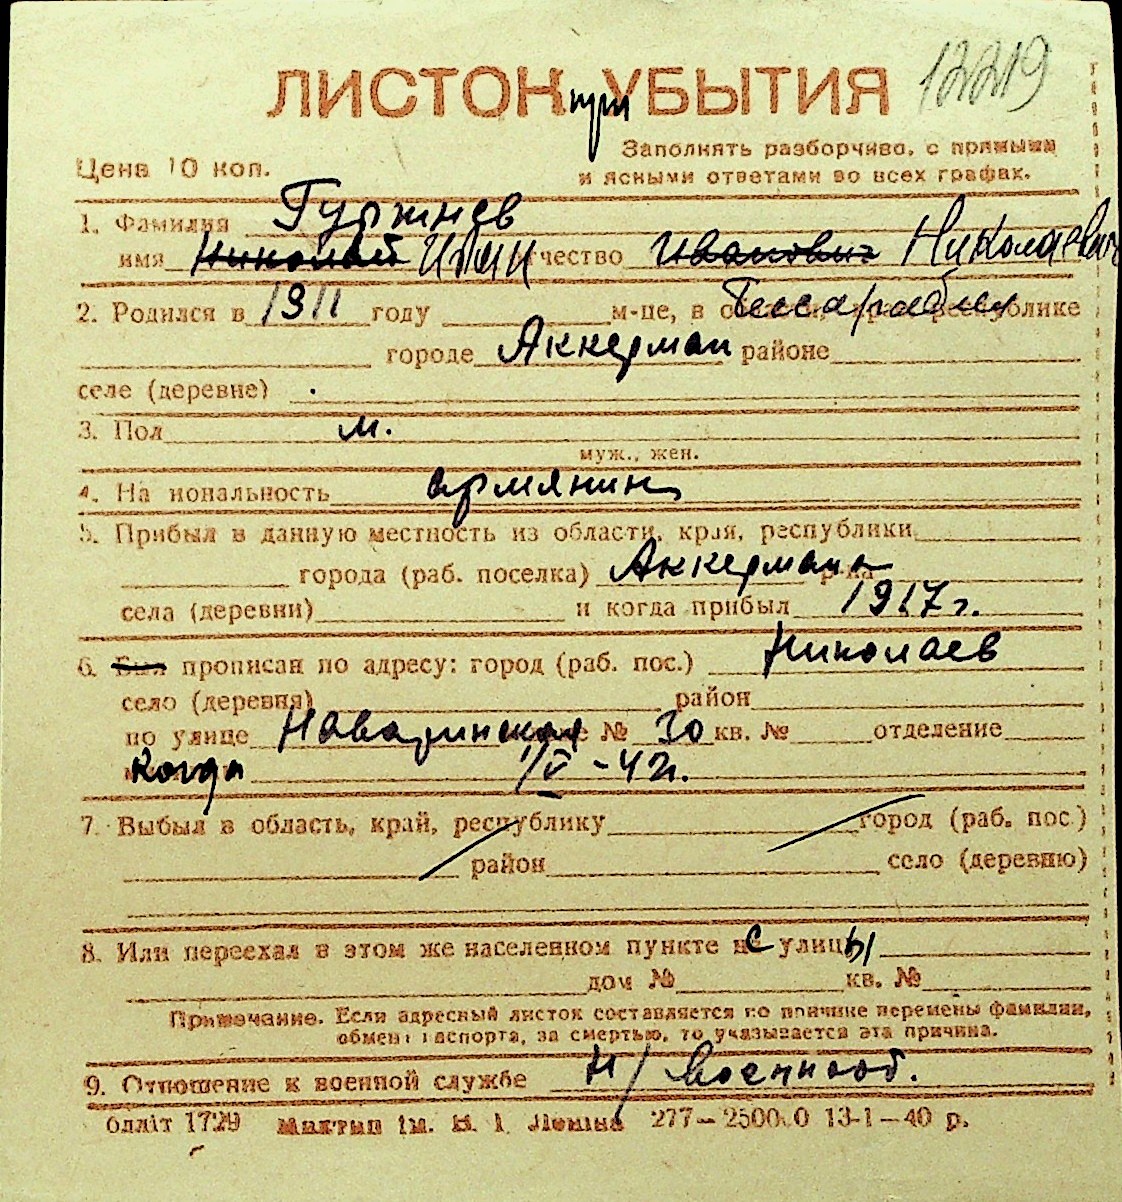 12219
ЛИСТОК при УБЫТИЯ
Цена 10 коп.
Заполнять разборчиво, с прямыми
и ясными ответами во всех графах.
1. Фамилия Гуржиев
имя Николай Иван отчество Иванович Николаевич
2. Родился в 1911 году м-це, в Бессарабии республике
городе Аккерман районе
селе (деревне)
3. Пол м.
муж., жен.
4. Национальность армянин
5. Прибыл в данную местность из области, края, республики
города (раб. поселка) Аккермана р-на
села (деревни) и когда прибыл 1917 г.
6. Был прописан по адресу: город (раб. пос.) Николаев
село (деревня) район
по улице Наваринская № 30 кв. № отделение
Когда 1/V - 42г.
7. Выбыл в область, край, республику город (раб. пос.)
район село (деревню)
8. Или переехал в этом же населенном пункте с улицы
дом № кв. №
Примечание. Если адресный листок составляется по причине перемены фамилии,
обмена паспорта, за смертью, то указывается эта причина.
9. Отношение к военной службе н/военнооб.
1729 ім. В. І. Леніна 277—250000 13-1—40 р.